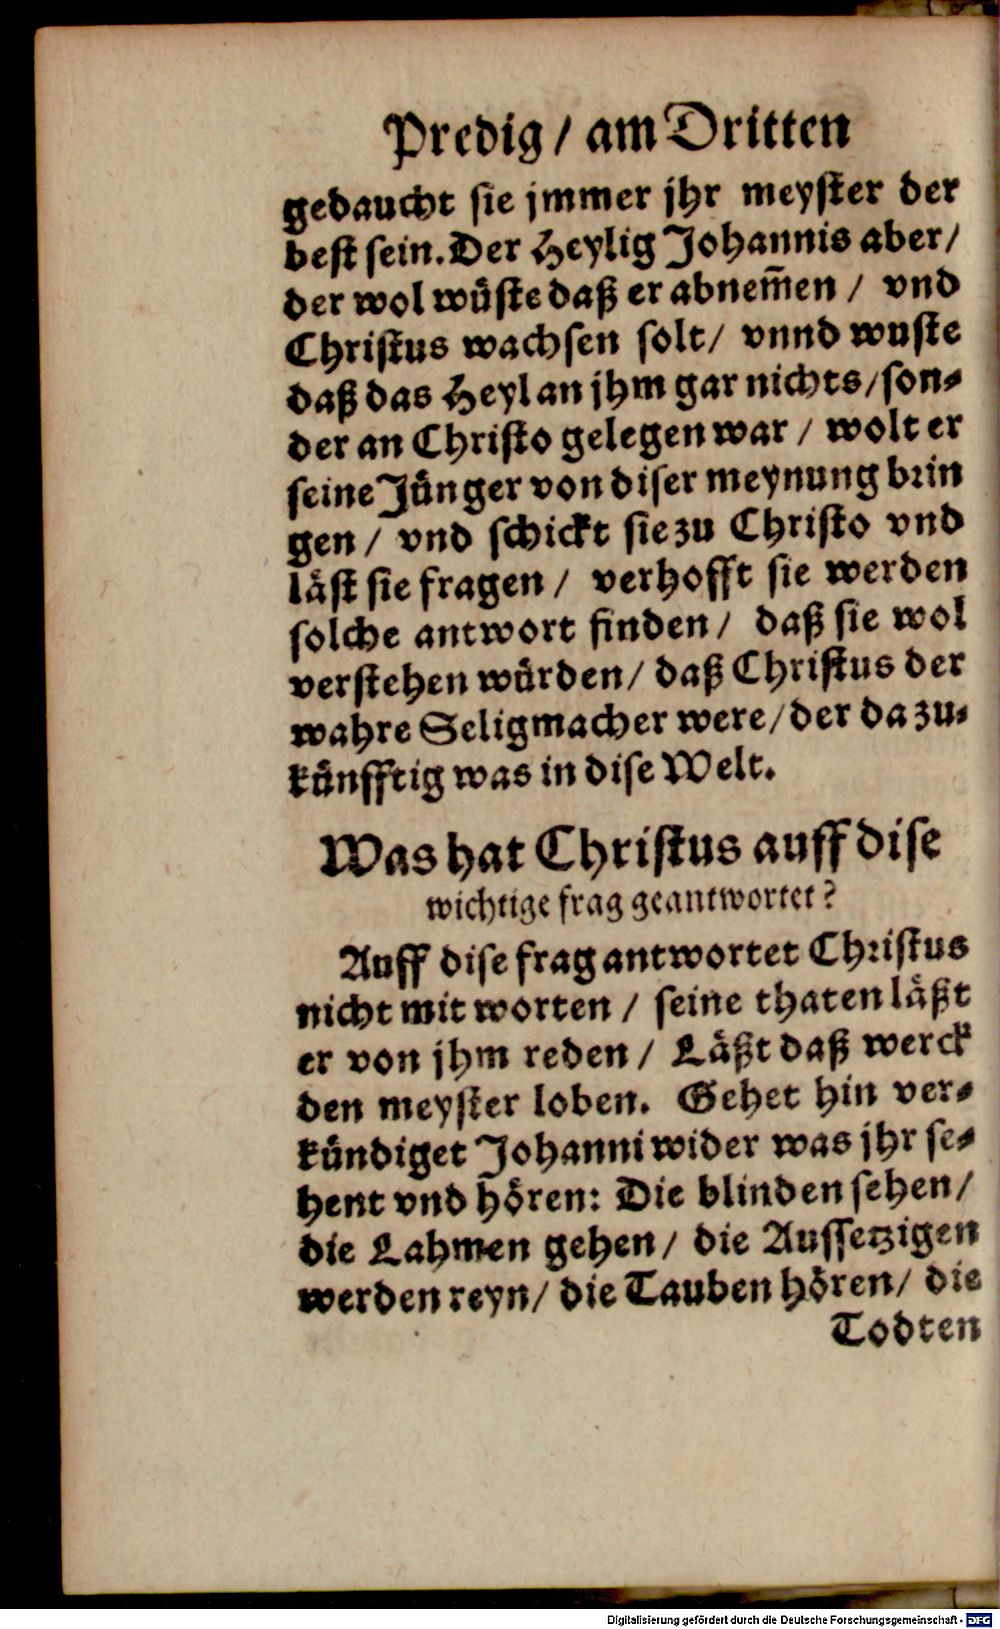 Predig / am Dritten
gedaucht sie jmmer jhr meyster der
best sein. Der Heylig Johannis aber /
der wol wüste daß er abnem̃en / vnd
Christus wachsen solt / vnnd wuste
daß das Heyl an jhm gar nichts / son-
der an Christo gelegen war / wolt er
seine Jünger von diser meynung brin
gen / vnd schickt sie zu Christo vnd
läst sie fragen / verhofft sie werden
solche antwort finden / daß sie wol
verstehen würden / daß Christus der
wahre Seligmacher were / der da zu-
künfftig was in dise Welt.
Was hat Christus auff dise
wichtige frag geantwortet?
Auff dise frag antwortet Christus
nicht mit worten / seine thaten läßt
er von jhm reden / Läßt daß werck
den meyster loben. Gehet hin ver-
kündiget Johanni wider was jhr se-
hent vnd hören: Die blinden sehen /
die Lahmen gehen / die Aussetzigen
werden reyn / die Tauben hören / die
Todten
Digitalisierung gefördert durch die Deutsche Forschungsgemeinschaft - DFG